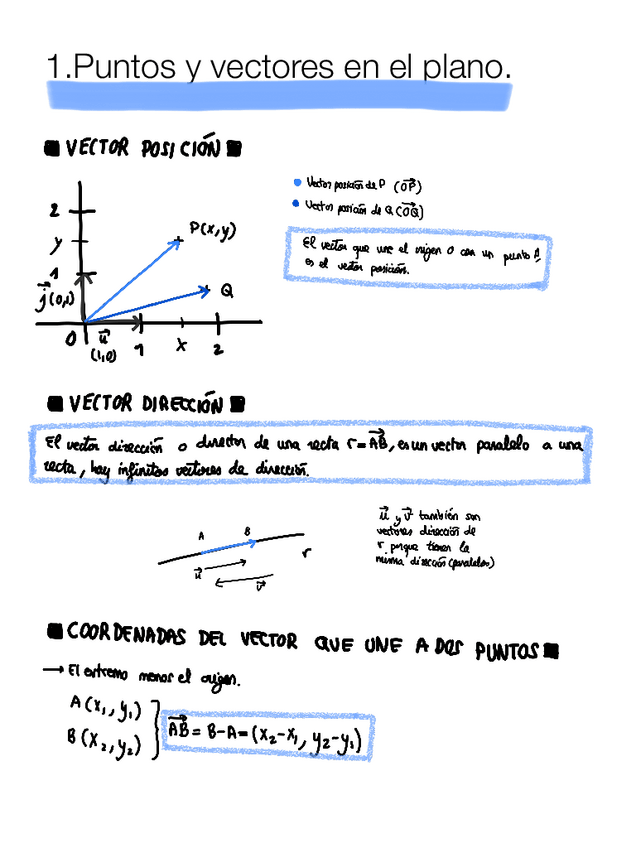 1.Puntos y vectores en el plano.
VECTOR POSICIÓN
Vector posición de P (OP⃗)
Vector posición de Q (OQ⃗)
El vector que une el origen O con un punto A
es el vector posición.
2
y
1
j⃗ (0,1)
P(x,y)
Q
0
u⃗
(1,0)
1
x
2
VECTOR DIRECCIÓN
El vector dirección o director de una recta r=AB⃗, es un vector paralelo a una
recta, hay infinitos vectores de dirección.
A
B
r
u⃗
v⃗
u⃗ y v⃗ también son
vectores dirección de
r porque tienen la
misma dirección (paralelos)
COORDENADAS DEL VECTOR QUE UNE A DOS PUNTOS
→ El extremo menos el origen.
A (x₁, y₁)
B (x₂, y₂)
AB⃗ = B-A = (x₂-x₁, y₂-y₁)